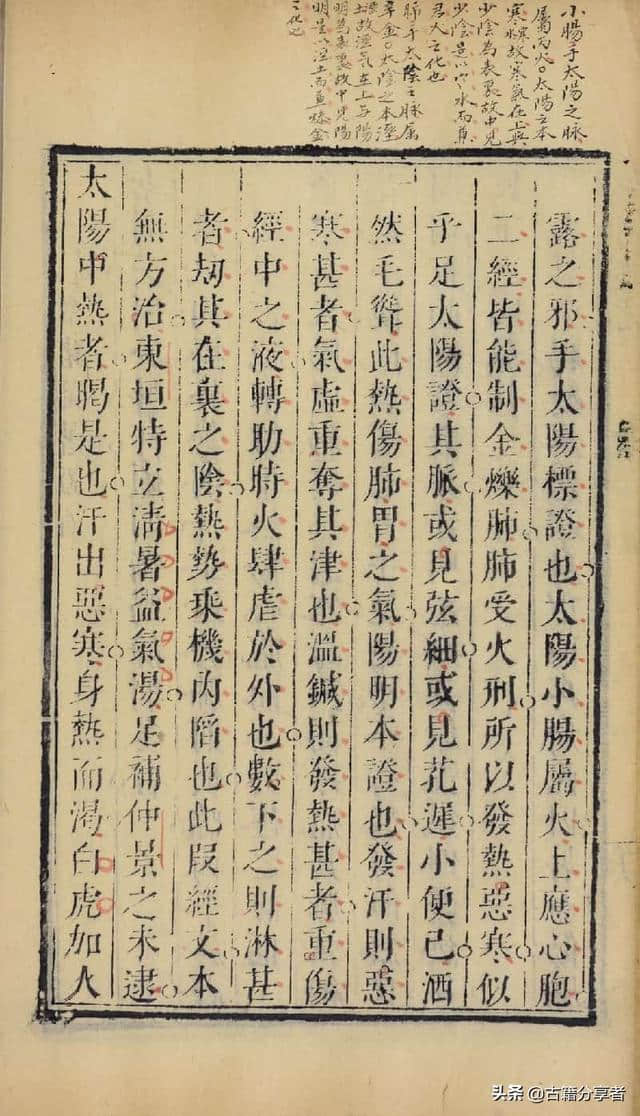 小腸手太陽之脉
屬丙火○太陽之本
寒水故寒氣在上與
少陰為表裏故中見
少陰是以水而兼
君火之化也
肺手太陰之脉属
辛金○太陰之本溼
土故溼氣在上与陽
明為表裏故中見陽
明是以土而兼燥金
之化也
露之邪手太陽標證也太陽小腸屬火上應心胞
二經皆能制金爍肺肺受火刑所以發熱惡寒似
乎足太陽證其脈或見弦細或見芤遲小便已洒
然毛聳此熱傷肺胃之氣陽明本證也發汗則惡
寒甚者氣虛重奪其津也溫鍼則發熱甚者重傷
經中之液轉助時火肆虐於外也數下之則淋甚
者劫其在裏之陰熱勢乘機內陷也此段經文本
無方治東垣特立淸暑益氣湯足補仲景之未逮
太陽中熱者暍是也汗出惡寒身熱而渴白虎加人
头条 @古籍分享者